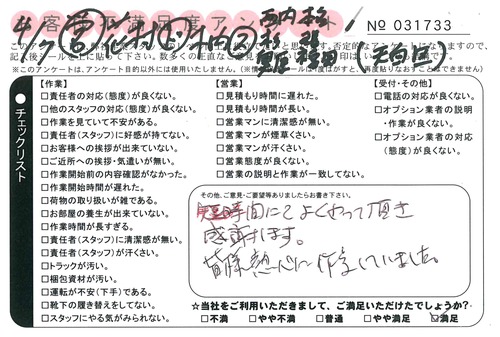 お客様満足度アンケート
No 031733
4/7
チェックリスト
【作業】
□責任者の対応(態度)が良くない。
□他のスタッフの対応(態度)が良くない。
□作業を見ていて不安がある。
□責任者(スタッフ)に好感が持てない。
□お客様への挨拶が出来ていない。
□ご近所への挨拶・気遣いが無い。
□作業開始前の内容確認がなかった。
□作業開始時間が遅れた。
□荷物の取り扱いが雑である。
□お部屋の養生が出来ていない。
□作業時間が長すぎる。
□責任者(スタッフ)に清潔感が無い。
□責任者(スタッフ)が汗くさい。
□トラックが汚い。
□梱包資材が汚い。
□運転が不安(下手)である。
□靴下の履き替えをしてない。
□スタッフにやる気がみられない。
【営業】
□見積もり時間に遅れた。
□見積もり時間が長い。
□営業マンに清潔感が無い。
□営業マンが煙草くさい。
□営業マンが汗くさい。
□営業態度が良くない。
□営業の説明と作業が一致してない。
【受付・その他】
□電話の対応が良くない。
□オプション業者の説明
・作業が良くない。
□オプション業者の対応
(態度)が良くない。
その他、ご意見・ご要望等ありましたらお書き下さい。
短時間にてよくやって頂き
感謝します。
皆様熱心に作業していました。
☆当社をご利用いただきまして、ご満足いただけたでしょうか?
□不満 □やや不満 □普通 □やや満足 □満足